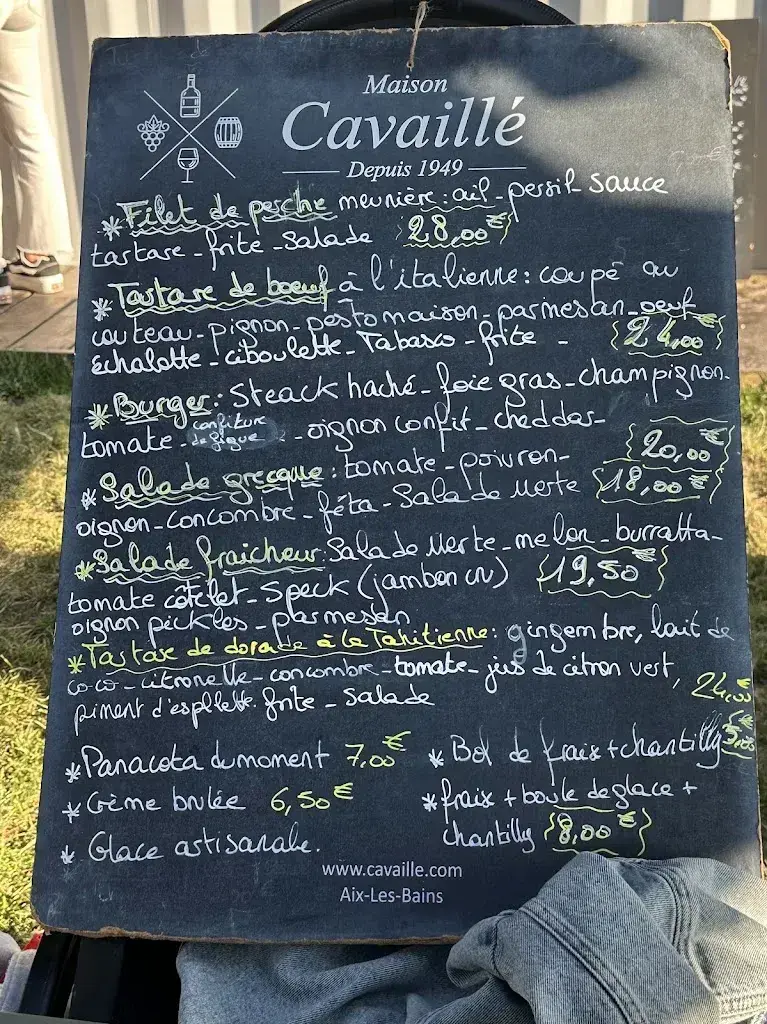 Maison
Cavaillé
Depuis 1949
* Filet de perche meunière: ail - persil sauce
tartare - frite - salade 28,00€
* Tartare de boeuf à l'italienne: coupé au
couteau - pignon - pesto maison - parmesan - oeuf
échalotte - ciboulette - Tabasco - frite - 24,00€
* Burger: Steack haché - foie gras - champignon -
tomate - confiture de figue - oignon confit - cheddar - 20,00€
* Salade grecque: tomate - poivron -
oignon - concombre - féta - Salade verte 18,00€
* Salade fraicheur: Salade verte - melon - burratta -
tomate côtelet - Speck (jambon cru) 19,50€
oignon pickles - parmesan
* Tartare de dorade à la Tahitienne: gingembre, lait de
coco - citronelle - concombre - tomate - jus de citron vert,
piment d'espllett. frite - salade 24,00
* Panacota du moment 7,00€
* Bol de frais + chantilly
* Crème brulée 6,50€
* frais + boule de glace +
chantilly 8,00€
* Glace artisanale.
www.cavaille.com
Aix-Les-Bains